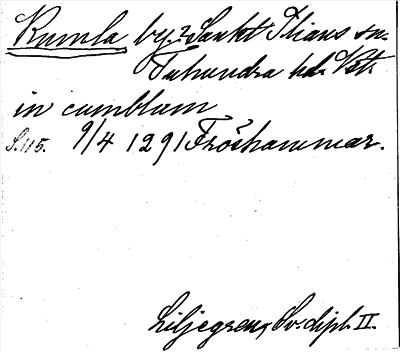 Kumla by, Sankt Ilians sn.
Tuhundra hd. Vstm.
in cumblum
S. 115. 9/4 1291 Fröshammar.
Liljegren, Sv. dipl. II.